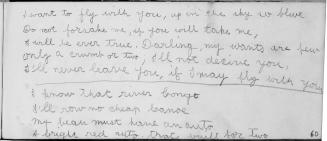 I want to fly with you, up in the sky so blue
Do not forsake me, if you will take me,
I will be ever true. Darling my wants are few
only a crumb or two, I'll not deceive you,
I'll never leave you, if I may fly with you
I know that river bongo
I'll row no cheap canoe
My beau must have an auto
A bright red auto that will for two
60